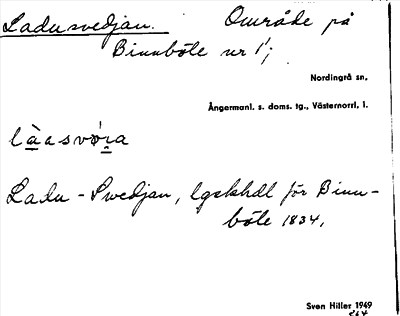 Ladusvedjan. Område på
Binnböle nr 1;
Nordingrå sn,
Ångermanl. s. doms. tg., Västernorrl. l.
Ladu-Swedjan, lgskhdl för Binn-
böle 1834,
Sven Hiller 1949